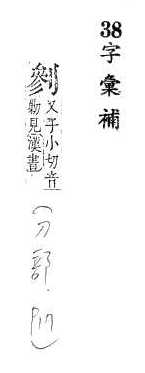 38字彙補
剼
又子小切音
勦見漢書
(刀部·P17)